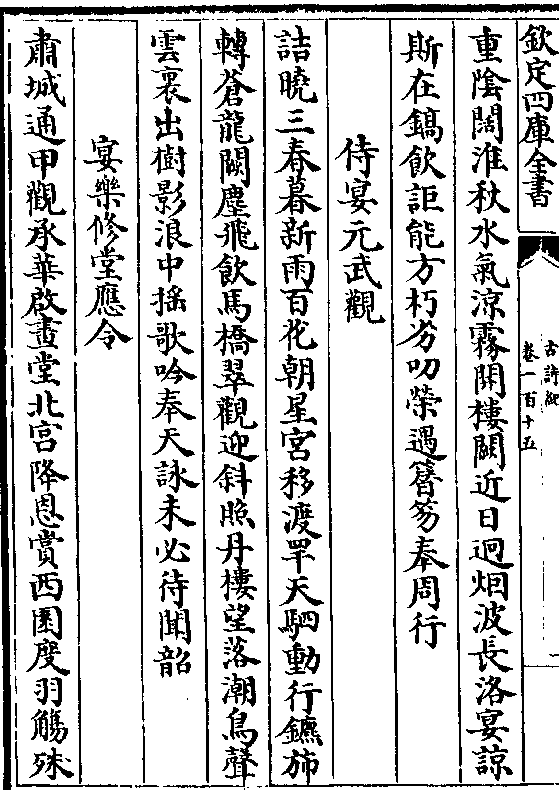 欽定四庫全書
古詩紀
卷一百十五
重陰闊淮秋水氣涼霧開樓闕近日迥烟波長洛宴諒
斯在鎬飲詎能方朽劣叨榮遇簪笏奉周行
侍宴元武觀
詰曉三春暮新雨百花朝星宮移渡罕天駟動行鑣斾
轉蒼龍闕塵飛飲馬橋翠觀迎斜照丹樓望落潮鳥聲
雲裏出樹影浪中揺歌吟奉天詠未必待聞韶
宴樂修堂應令
肅城通甲觀承華啟畫堂北宮降恩賞西園度羽觴殊